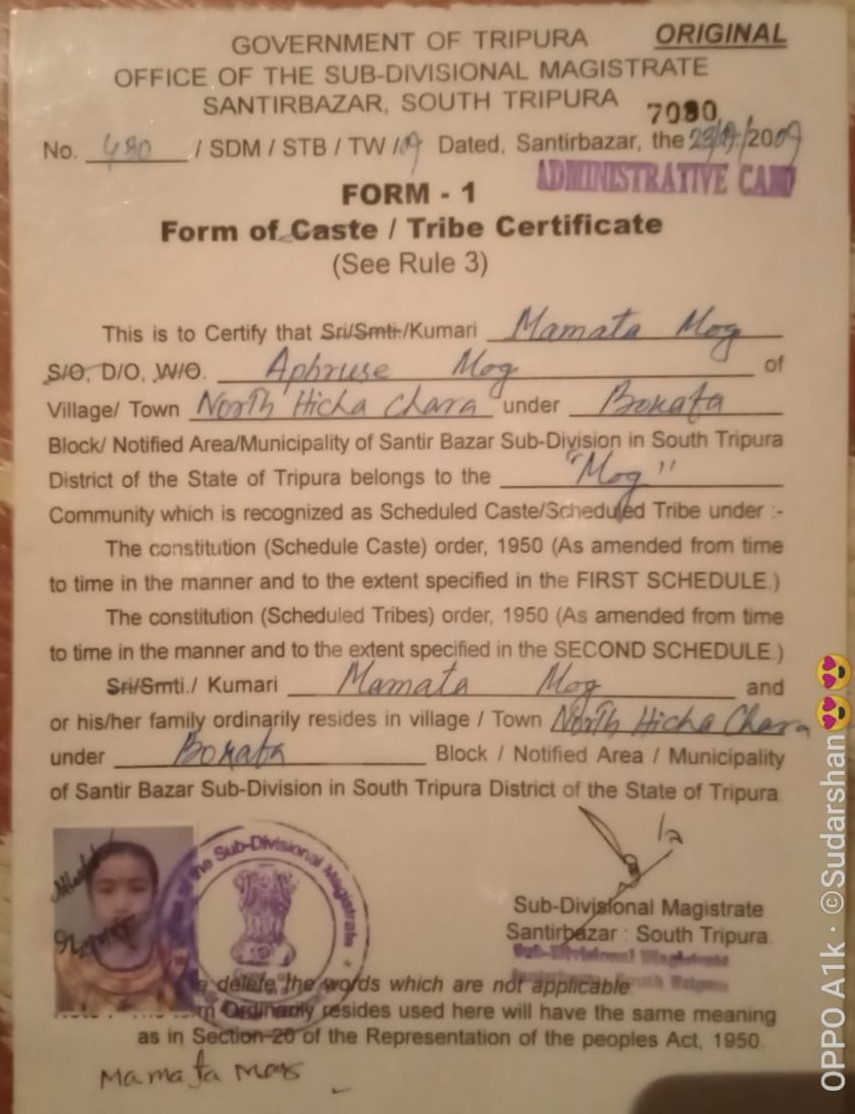 ORIGINAL
GOVERNMENT OF TRIPURA
OFFICE OF THE SUB-DIVISIONAL MAGISTRATE
SANTIRBAZAR, SOUTH TRIPURA
7080
No. 480 / SDM / STB / TW /09 Dated, Santirbazar, the /2009
ADMINISTRATIVE CAMP
FORM - 1
Form of Caste / Tribe Certificate
(See Rule 3)
This is to Certify that Sri/Smti-/Kumari Mamata Mog
S/O, D/O, W/O. Aphruse Mog of
Village/ Town North Hicha Chara under Bokafa
Block/ Notified Area/Municipality of Santir Bazar Sub-Division in South Tripura
District of the State of Tripura belongs to the "Mog"
Community which is recognized as Scheduled Caste/Scheduled Tribe under :-
The constitution (Schedule Caste) order, 1950 (As amended from time
to time in the manner and to the extent specified in the FIRST SCHEDULE.)
The constitution (Scheduled Tribes) order, 1950 (As amended from time
to time in the manner and to the extent specified in the SECOND SCHEDULE.)
Sri/Smti./ Kumari Mamata Mog and
or his/her family ordinarily resides in village / Town North Hicha Chara
under Bokafa Block / Notified Area / Municipality
of Santir Bazar Sub-Division in South Tripura District of the State of Tripura.
of the Sub-Divisional Magistrate
Sub-Divisional Magistrate
Santirbazar : South Tripura.
Sub-Divisional Magistrate
South Tripura
delete the words which are not applicable.
Ordinarily resides used here will have the same meaning
as in Section-20 of the Representation of the peoples Act, 1950.
Mamata Mog
OPPO A1k · ©Sudarshan😍😍